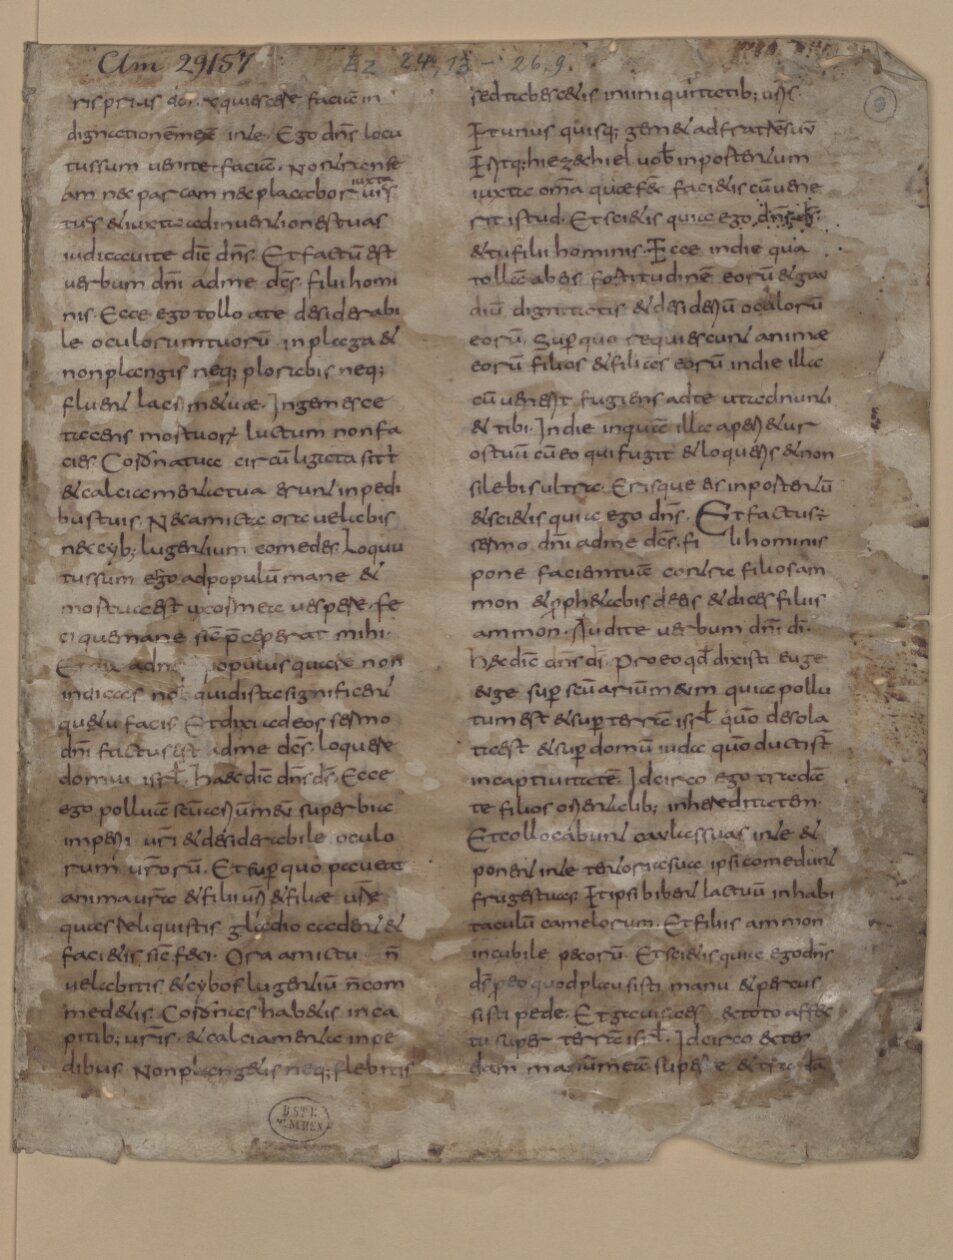 Clm 29157
Ez 24,13 - 26,9.
ris prius don requiescere faciā in
dignationē meā in te. Ego dn̄s locu
tus sum veniet et faciā. Non transe
am nec parcam nec placabor iuxta vias
tuas & iuxta adinuentiones tuas
iudicauit te dic̄ dn̄s. Et factū est
uerbum dn̄i ad me dc̄s. fili homi
nis. Ecce ego tollo a te desiderabi
le oculorum tuorū in plaga &
non planges neq; plorabis neq;
fluent lacrimae tuae. Ingemesce
tacens mortuorū luctum non fa
cies. Corona tua circūligata sit t
& calciamenta tua erunt in pedi
bus tuis. Nec amictu ora uelabis
nec cyb; lugentium comedes. Locu
tus sum ego ad populū mane &
mortua est uxor mea uespere. fe
ci que mane sic̄ p̄ceperat mihi.
ad me populus quare non
indicas nob quid ista significent
que tu facis. Et dixi ad eos sermo
dn̄i factus est ad me dc̄s. loquere
domui isrl̄. Haec dic̄ dn̄s ds̄. Ecce
ego polluā sc̄uarium meū superbiā
imperii ur̄i & desiderabile oculo
rum ur̄orū. Et sup̄ quo pauet
anima ur̄a & filii ur̄i & filiae ur̄ae
quas reliquistis gladio cadent &
facietis sic̄ feci. Ora amictu n̄
uelabitis & cybos lugentiū n̄ com
medetis. Coronas habetis in ca
pitib; ur̄is. & calciamenta in pe
dibus. Non plangetis neq; flebitis
sed tabescetis in iniquitatib; ur̄is.
Et unus quisq; gemet ad fratrē suū
Eritq; hiezechiel uob̄ in portentum
iuxta om̄a quae fec̄ facietis cū uene
rit istud. Et scietis quia ego dn̄s ds̄.
& tu fili hominis. Ecce in die qua
tollā ab eis fortitudinē eorū & gau
diū dignitatis & desideriū oculorū
eorū. Sup̄ quo requiescunt anime
eorū filios & filias eorū in die illa
cū uenerit fugiens ad te ut adnunt
& tibi. In die inquā illa aperietur
os tuū cū eo qui fugit & loqueris & non
silebis ultra. Erisque eis in portentū
& scietis quia ego dn̄s. Et factus ÷
sermo dn̄i ad me dc̄s. fili hominis
pone faciem tuā contra filios am
mon & prophetabis de eis & dices filiis
ammon. Audite uerbum dn̄i di.
haec dic̄ dn̄s ds̄. Pro eo qd̄ dixisti euge
euge sup̄ sc̄uariūm eum quia pollu
tum est & sup̄ terrā isrl̄ quō desola
ta est & sup̄ domū iuda quō ducti st̄
in captiuitatē. Idcirco ego tradā
te filios orientalib; in hereditatem.
Et collocabunt caulas suas in te &
ponent in te tentoria sua ipsi comedunt
fruges tuas Et ipsi bibent lac tuū in habi
taculū camelorum. Et filiis ammon
in cubile pecorū. Et scietis quia ego dn̄s
ds̄ p̄ eo quod plausisti manu & percus
sisti pede. Et gauisa es ex toto affec
tu super terrā isrl̄. Idcirco ecce ex
dam manū meā super te & tradā
B.ST.B.
MÜNCHEN